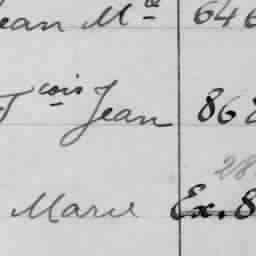 ean Mie 646
Fcois Jean 868
28
Marie Ex. 8